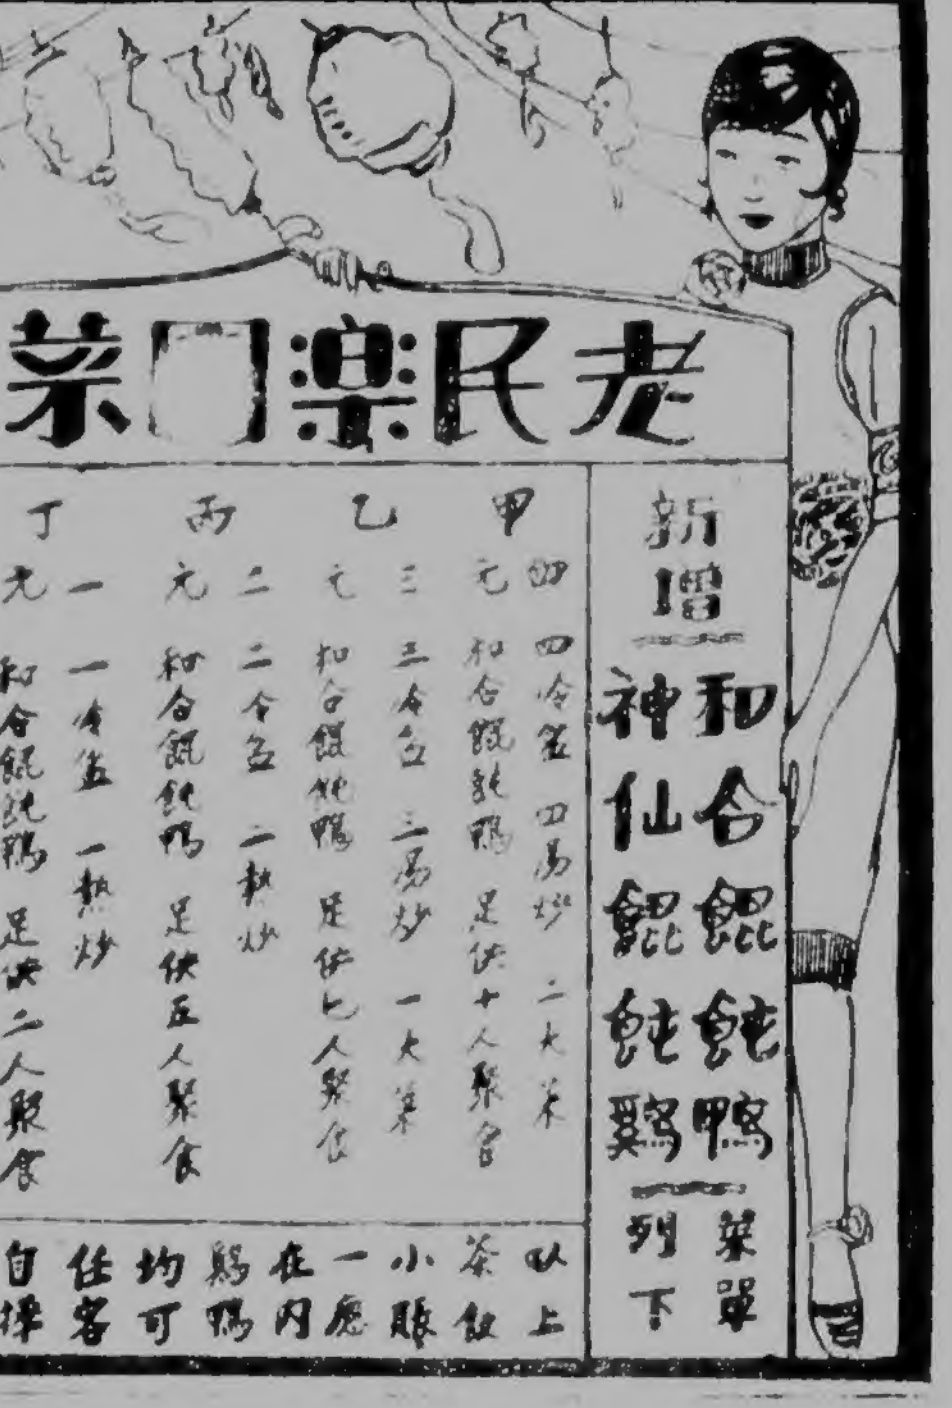 老民樂門菜
新增
和合餛飩鴨
神仙餛飩鷄
菜單
列下
甲 四元
四冷盆 四湯炒 二大菜
和合餛飩鴨 足供十人聚食
乙 三元
三冷盆 二湯炒 一大菜
和合餛飩鴨 足供七人聚食
丙 二元
二冷盆 二熱炒
和合餛飩鴨 足供五人聚食
丁 一元
一冷盆 一熱炒
和合餛飩鴨 足供二人聚食
以上茶飯小賬一應在內鷄鴨均可任客自擇